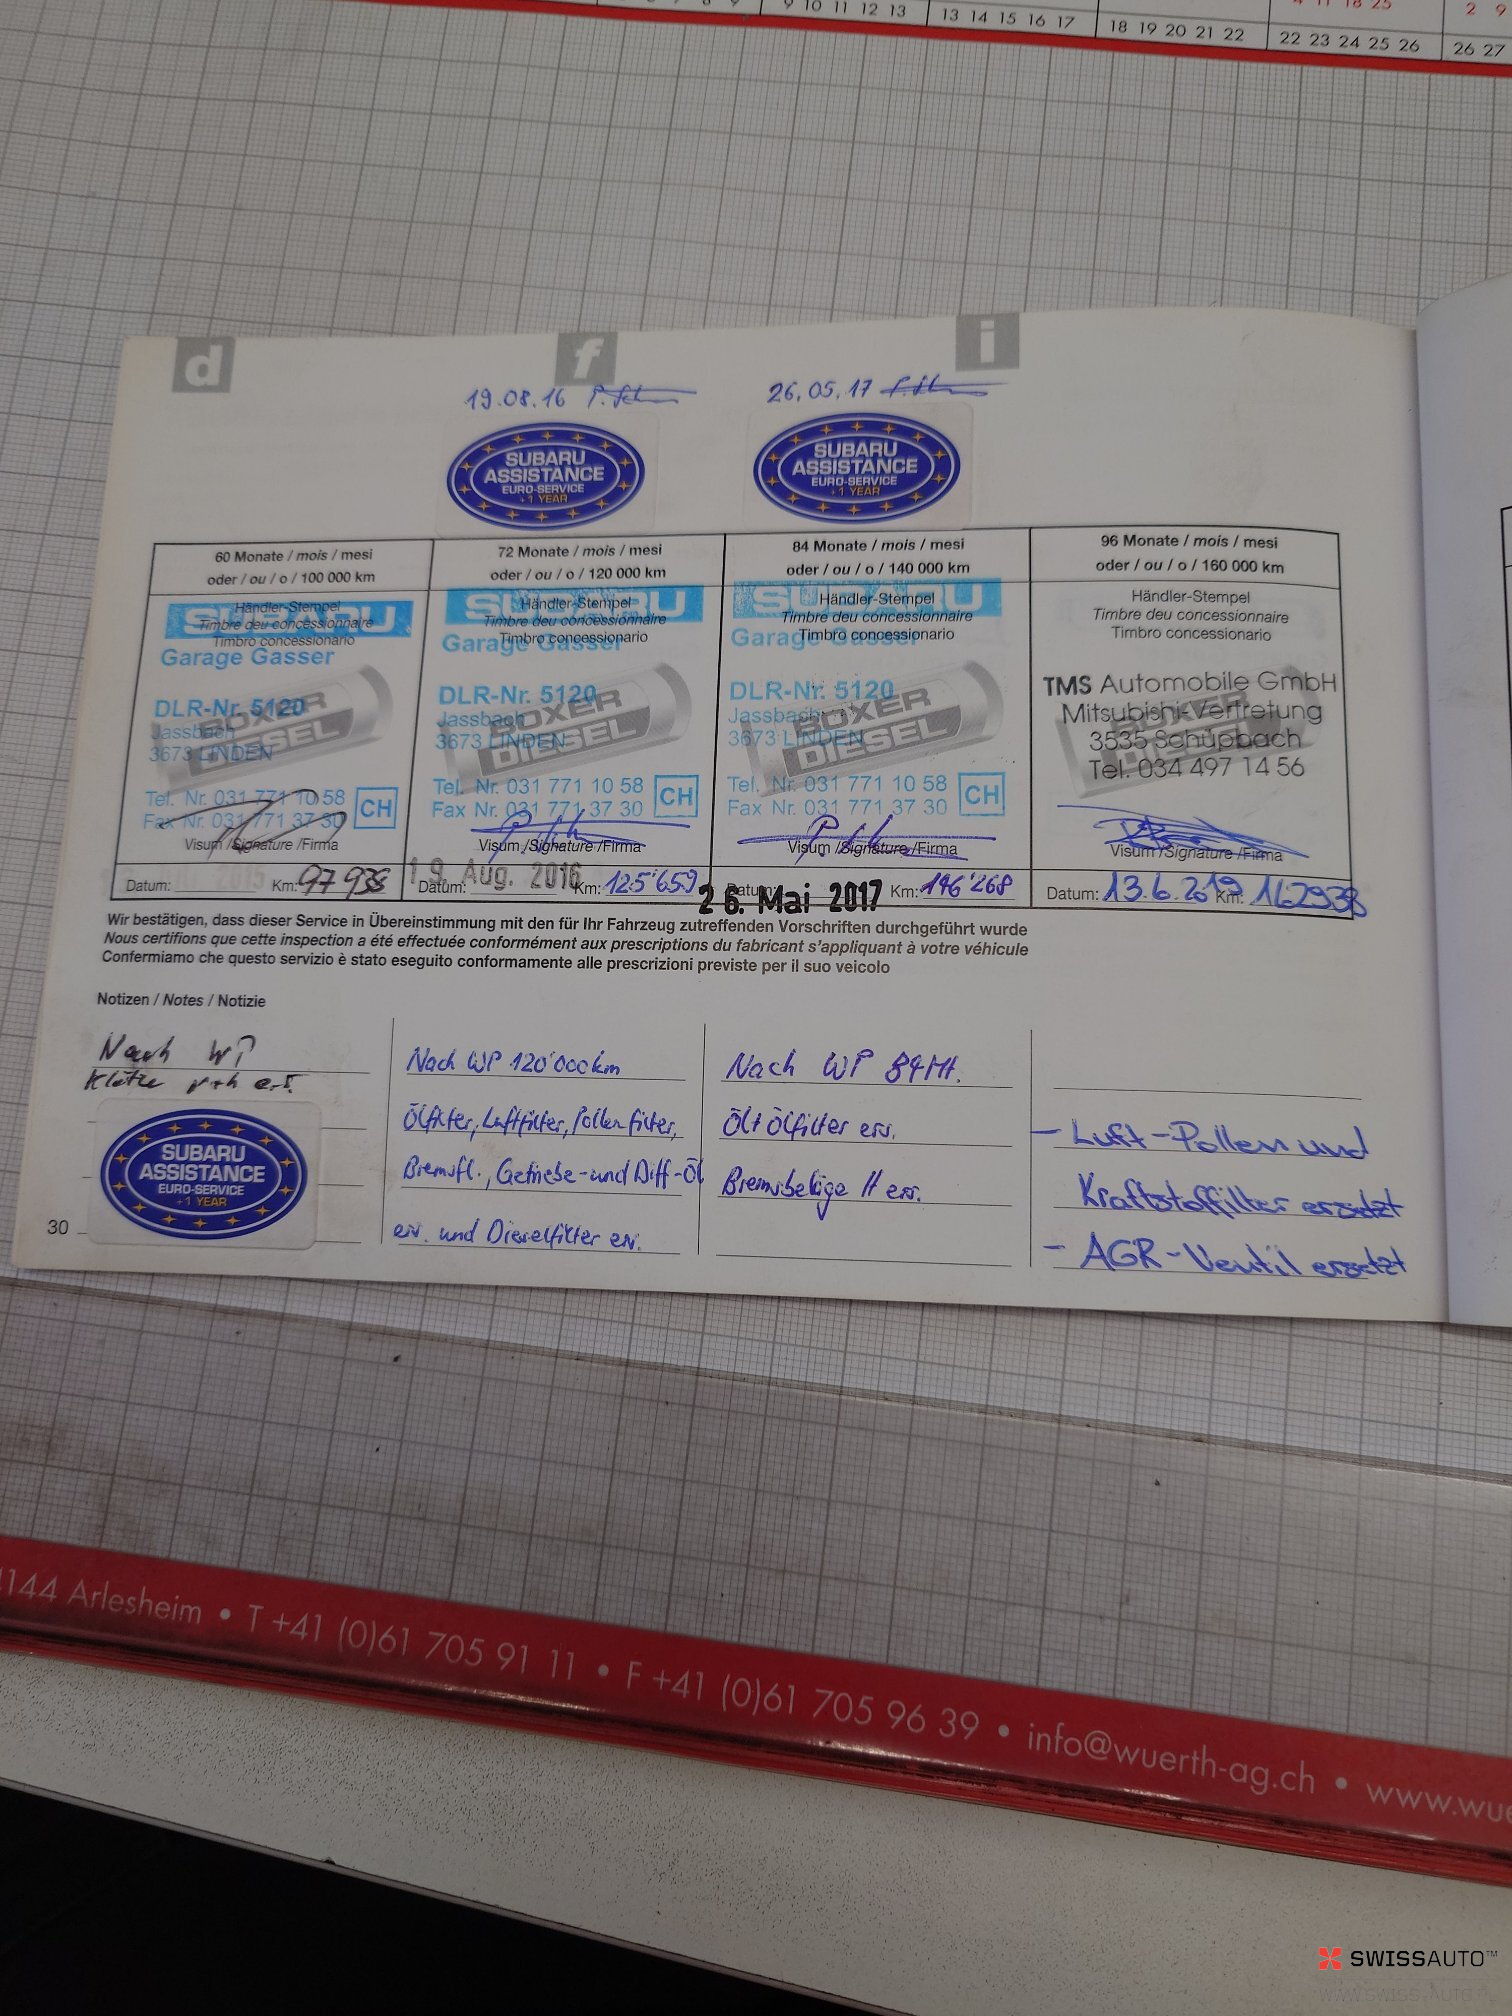 9 10 11 12 13
13 14 15 16 17
18 19 20 21 22
4 11 18 25
22 23 24 25 26
2 9
26 27
d f i
19.08.16
26.05.17
SUBARU
ASSISTANCE
EURO-SERVICE
+1 YEAR
SUBARU
ASSISTANCE
EURO-SERVICE
+1 YEAR
60 Monate / mois / mesi
oder / ou / o / 100 000 km
SUBARU
Händler-Stempel
Timbre deu concessionnaire
Timbro concessionario
Garage Gasser
DLR-Nr. 5120
Jassbach
3673 LINDEN
BOXER
DIESEL
Tel. Nr. 031 771 10 58
Fax Nr. 031 771 37 30
CH
Visum /Signature /Firma
Datum: 2015 Km: 97 938
72 Monate / mois / mesi
oder / ou / o / 120 000 km
SUBARU
Händler-Stempel
Timbre deu concessionnaire
Timbro concessionario
Garage Gasser
DLR-Nr. 5120
Jassbach
3673 LINDEN
BOXER
DIESEL
Tel. Nr. 031 771 10 58
Fax Nr. 031 771 37 30
CH
Visum /Signature /Firma
Datum: 19. Aug. 2016 Km: 125'659
84 Monate / mois / mesi
oder / ou / o / 140 000 km
SUBARU
Händler-Stempel
Timbre deu concessionnaire
Timbro concessionario
Garage Gasser
DLR-Nr. 5120
Jassbach
3673 LINDEN
BOXER
DIESEL
Tel. Nr. 031 771 10 58
Fax Nr. 031 771 37 30
CH
Visum /Signature /Firma
Datum: 26. Mai 2017 Km: 146'268
96 Monate / mois / mesi
oder / ou / o / 160 000 km
Händler-Stempel
Timbre deu concessionnaire
Timbro concessionario
TMS Automobile GmbH
Mitsubishi-Vertretung
3535 Schüpbach
Tel. 034 497 14 56
Visum /Signature /Firma
Datum: 13.6.2019 Km: 162938
Wir bestätigen, dass dieser Service in Übereinstimmung mit den für Ihr Fahrzeug zutreffenden Vorschriften durchgeführt wurde
Nous certifions que cette inspection a été effectuée conformément aux prescriptions du fabricant s'appliquant à votre véhicule
Confermiamo che questo servizio è stato eseguito conformamente alle prescrizioni previste per il suo veicolo
Notizen / Notes / Notizie
Nach WP
Klötze v+h ers.
SUBARU
ASSISTANCE
EURO-SERVICE
+1 YEAR
Nach WP 120'000km
Ölfilter, Luftfilter, Pollenfilter,
Bremsfl., Getriebe- und Diff-Öl
ers. und Dieselfilter ers.
Nach WP 84Mt.
Öl+Ölfilter ers.
Bremsbeläge H ers.
- Luft-Pollen und
Kraftstoffilter ersetzt
- AGR-Ventil ersetzt
30
4144 Arlesheim • T +41 (0)61 705 91 11 • F +41 (0)61 705 96 39 • info@wuerth-ag.ch •
SWISSAUTO™